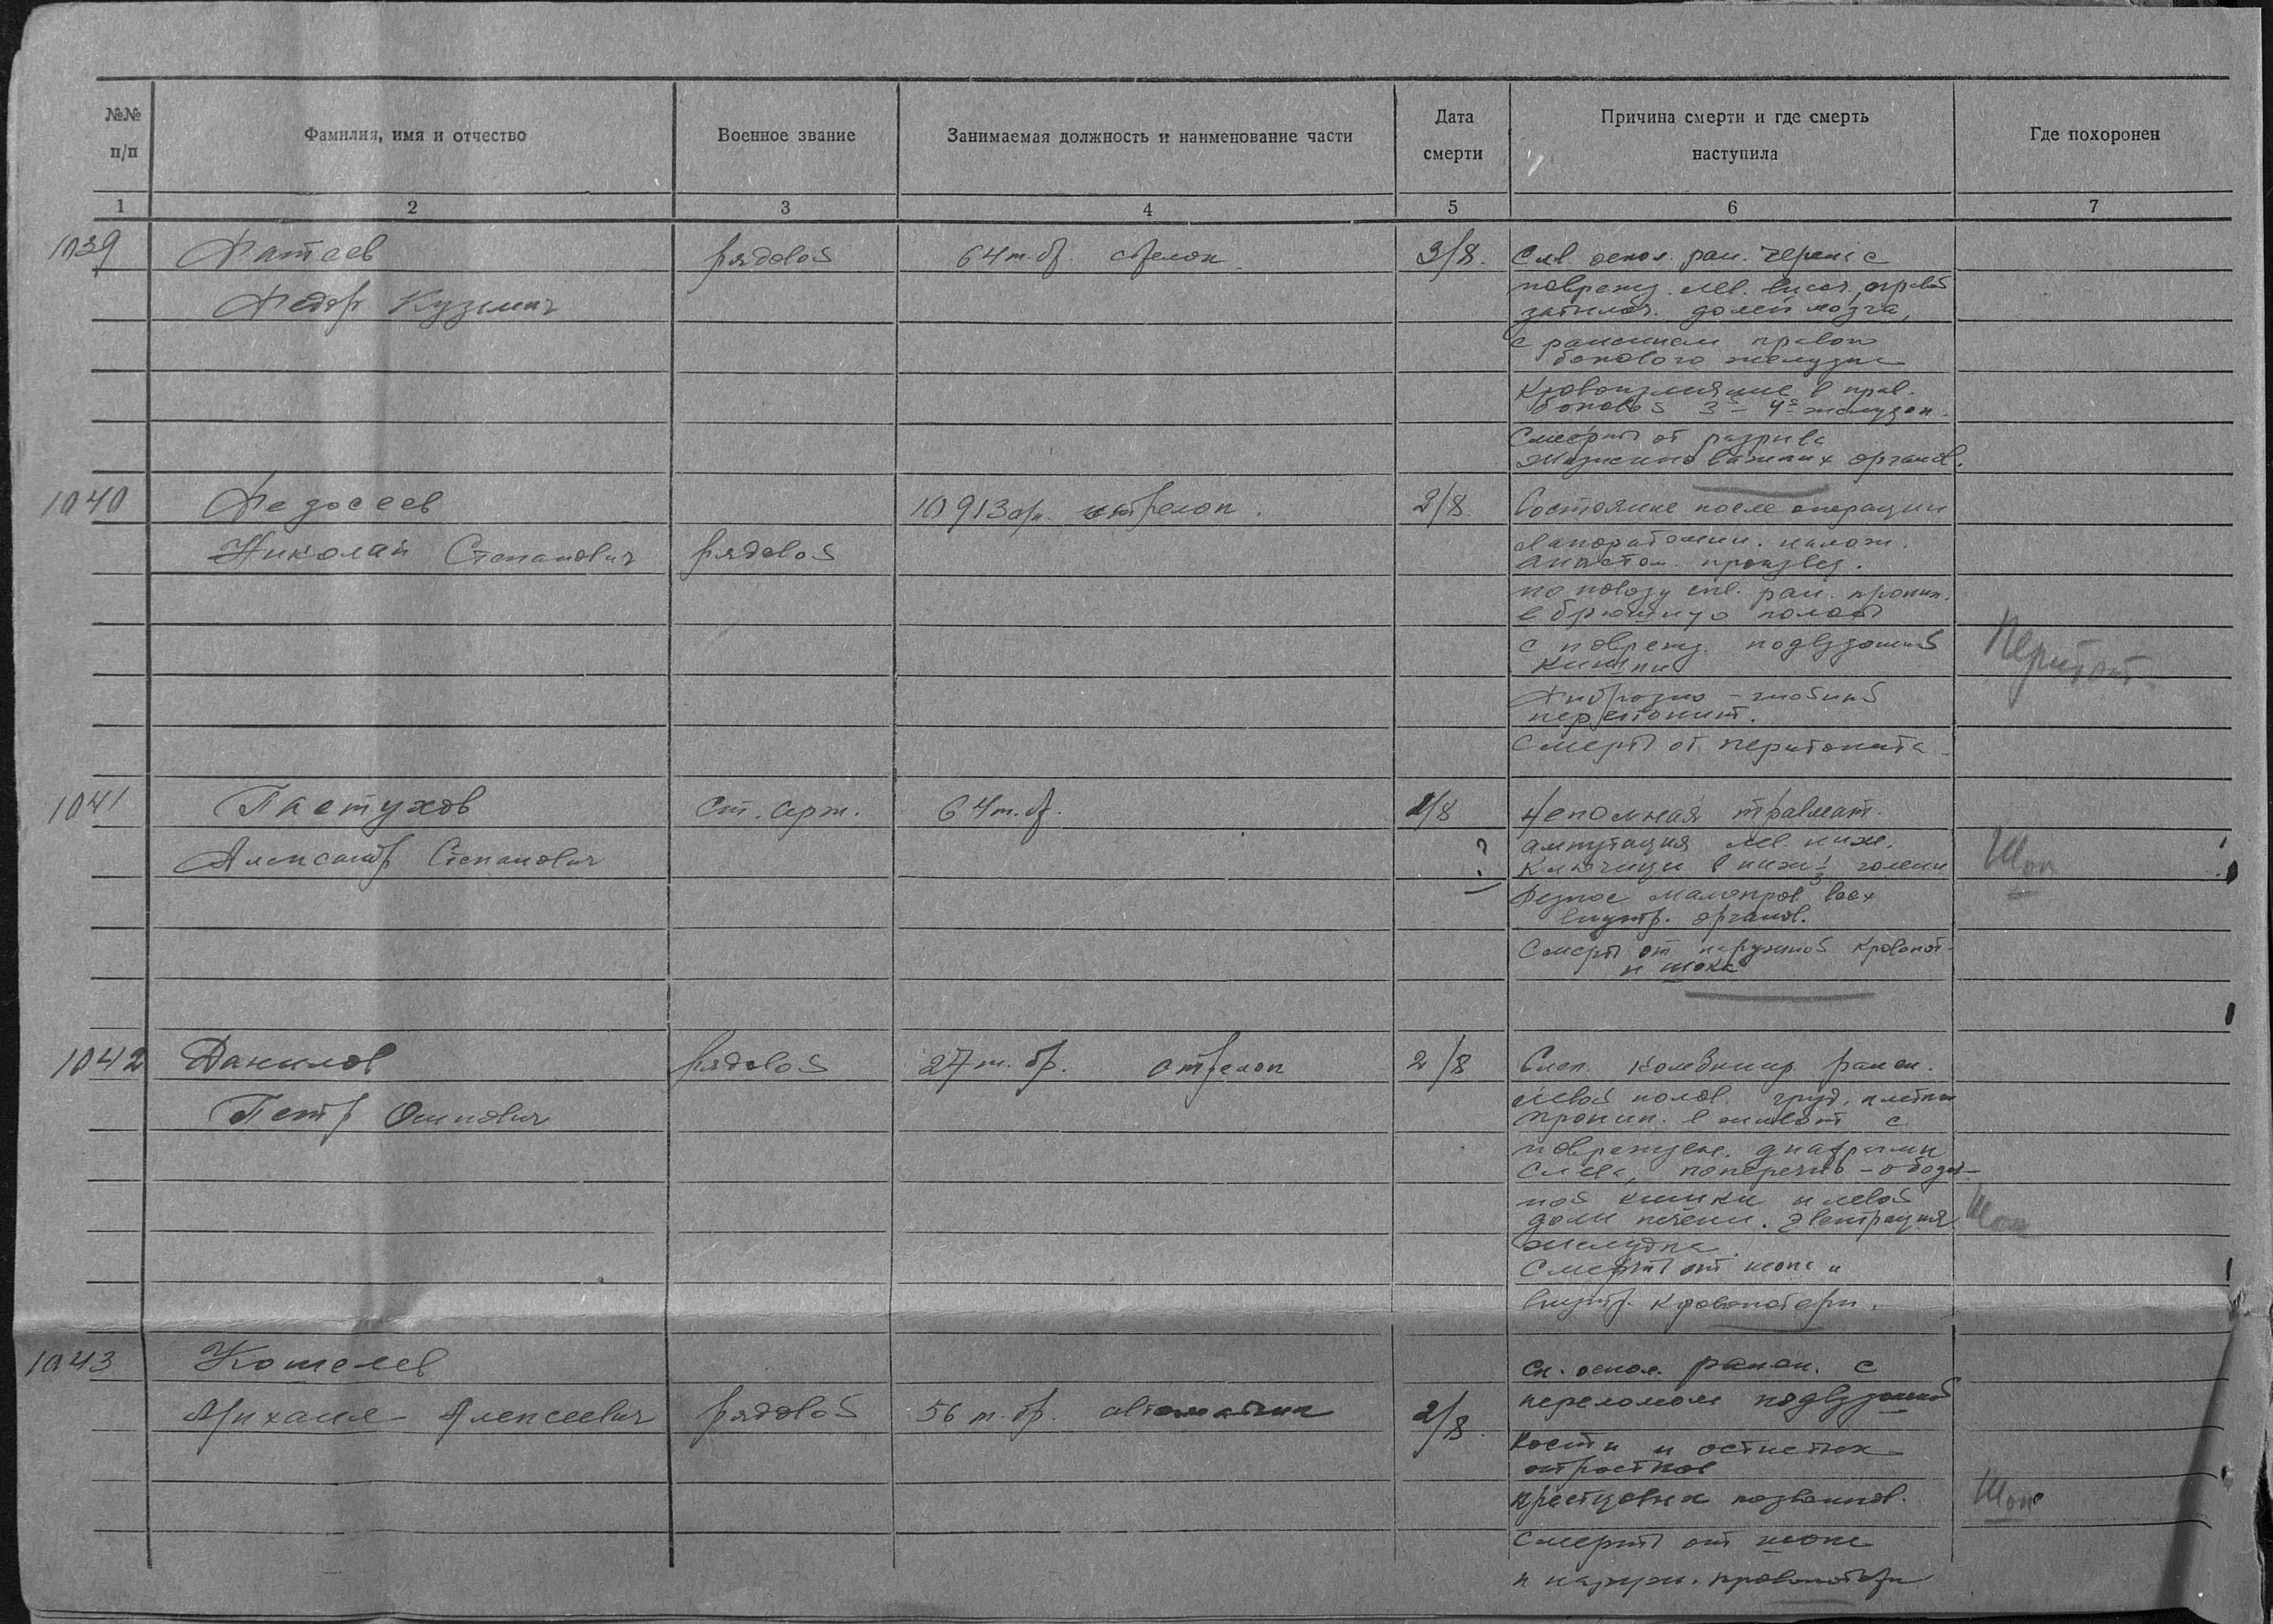 №№ п/п
Фамилия, имя и отчество
Военное звание
Занимаемая должность и наименование части
Дата смерти
Причина смерти и где смерть наступила
Где похоронен
1 2 3 4 5 6 7
1039 Фатеев рядовой 64 т. бр. стрелок 3/8. Слеп. оскол. ран. черепа с
Федор Кузьмич поврежд. лев. височ., правой
затылоч. долей мозга,
с ранением правого
бокового желудка
Кровоизлияние в прав.
боковой 3й - 4й желудок.
Смерть от разрыва
жизненно важных органов.
1040 Федосеев 10913 стрелок. 2/8 Состояние после операции
Николай Степанович рядовой лапоратомии. налож.
анастом. произвед.
по поводу слеп. ран. проник.
в брюшную полость
с поврежд. подвздошной
кишки Перитонит
Фиброзно - гнойный
перитонит.
Смерть от перитонита
1041 Пастухов ст. серж. 64 т. бр. 2/8 Неполная травмат.
Александр Степанович ? ампутация лев. ниж.
конечности в ниж 1/3 голени Шок
Резкое малокров всех
внутр. органов.
Смерть от наружной кровопот-
и шока
1042 Данилов рядовой 27 т. бр. стрелок 2/8 Слеп. ранен.
Петр Осипович левой полов. груд. клетки
проник. в живот с
поврежден. диафрагмы
слева, поперечно - ободоч-
ной кишки и левой
доли печени. Эвентрация Шок
желудка.
Смерть от шока и
внутр. кровопотери.
1043 Кошелев Сл. оскол. ранен. с
Михаил Алексеевич рядовой 56 т. бр. автоматчик 2/8. переломом подвздошной
кости и остистых
отростков
крестцовых позвонков. Шок
Смерть от шока
и наруж. кровопотери